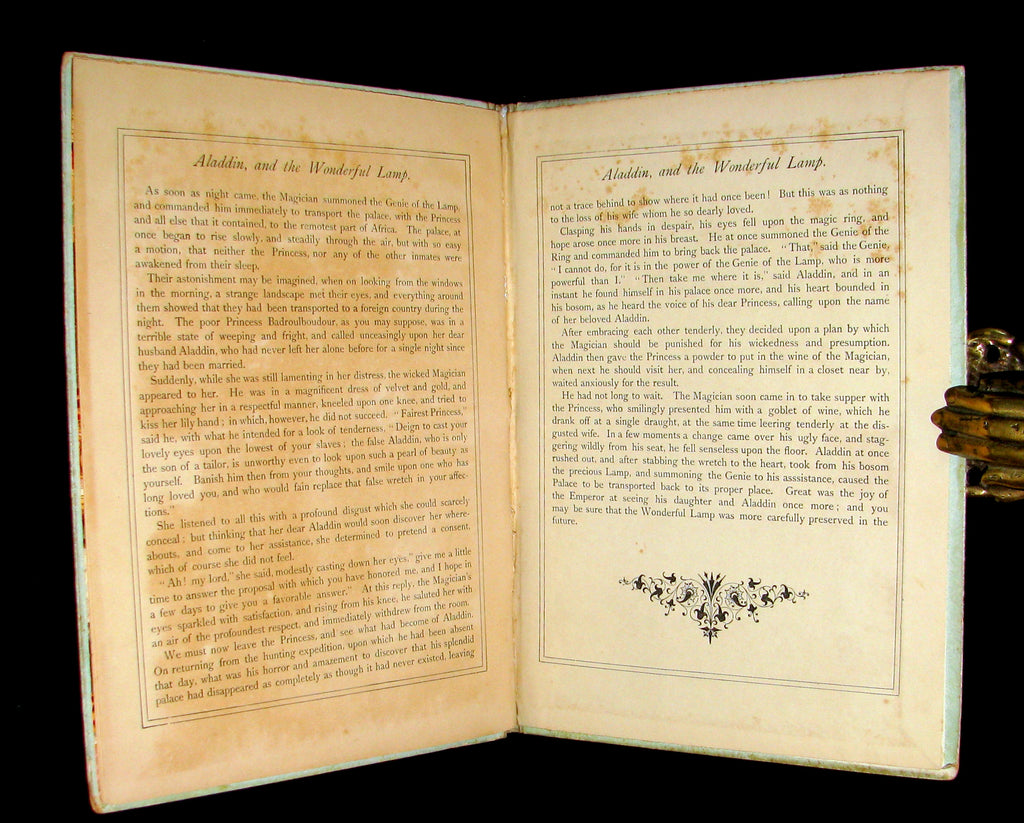 Aladdin, and the Wonderful Lamp.
As soon as night came, the Magician summoned the Genie of the Lamp,
and commanded him immediately to transport the palace, with the Princess
and all else that it contained, to the remotest part of Africa. The palace, at
once began to rise slowly, and steadily through the air, but with so easy
a motion, that neither the Princess, nor any of the other inmates were
awakened from their sleep.
Their astonishment may be imagined, when on looking from the windows
in the morning, a strange landscape met their eyes, and everything around
them showed that they had been transported to a foreign country during the
night. The poor Princess Badroulboudour, as you may suppose, was in a
terrible state of weeping and fright, and called unceasingly upon her dear
husband Aladdin, who had never left her alone before for a single night since
they had been married.
Suddenly, while she was still lamenting in her distress, the wicked Magician
appeared to her. He was in a magnificent dress of velvet and gold, and
approaching her in a respectful manner, kneeled upon one knee, and tried to
kiss her lily hand; in which, however, he did not succeed. "Fairest Princess,"
said he, with what he intended for a look of tenderness, "Deign to cast your
lovely eyes upon the lowest of your slaves; the false Aladdin, who is only
the son of a tailor, is unworthy even to look upon such a pearl of beauty as
yourself. Banish him then from your thoughts, and smile upon one who has
long loved you, and who would fain replace that false wretch in your affec-
tions."
She listened to all this with a profound disgust which she could scarcely
conceal; but thinking that her dear Aladdin would soon discover her where-
abouts, and come to her assistance, she determined to pretend a consent,
which of course she did not feel.
"Ah! my lord," she said, modestly casting down her eyes," give me a little
time to answer the proposal with which you have honored me, and I hope in
a few days to give you a favorable answer." At this reply, the Magician's
eyes sparkled with satisfaction, and rising from his knee, he saluted her with
an air of the profoundest respect, and immediately withdrew from the room.
We must now leave the Princess, and see what had become of Aladdin.
On returning from the hunting expedition, upon which he had been absent
that day, what was his horror and amazement to discover that his splendid
palace had disappeared as completely as though it had never existed, leaving
Aladdin, and the Wonderful Lamp.
not a trace behind to show where it had once been! But this was as nothing
to the loss of his wife whom he so dearly loved.
Clasping his hands in despair, his eyes fell upon the magic ring, and
hope arose once more in his breast. He at once summoned the Genie of the
Ring and commanded him to bring back the palace. "That," said the Genie,
"I cannot do, for it is in the power of the Genie of the Lamp, who is more
powerful than I." "Then take me where it is," said Aladdin, and in an
instant he found himself in his palace once more, and his heart bounded in
his bosom, as he heard the voice of his dear Princess, calling upon the name
of her beloved Aladdin.
After embracing each other tenderly, they decided upon a plan by which
the Magician should be punished for his wickedness and presumption.
Aladdin then gave the Princess a powder to put in the wine of the Magician,
when next he should visit her, and concealing himself in a closet near by,
waited anxiously for the result.
He had not long to wait. The Magician soon came in to take supper with
the Princess, who smilingly presented him with a goblet of wine, which he
drank off at a single draught, at the same time leering tenderly at the dis-
gusted wife. In a few moments a change came over his ugly face, and stag-
gering wildly from his seat, he fell senseless upon the floor. Aladdin at once
rushed out, and after stabbing the wretch to the heart, took from his bosom
the precious Lamp, and summoning the Genie to his asssistance, caused the
Palace to be transported back to its proper place. Great was the joy of
the Emperor at seeing his daughter and Aladdin once more; and you
may be sure that the Wonderful Lamp was more carefully preserved in the
future.